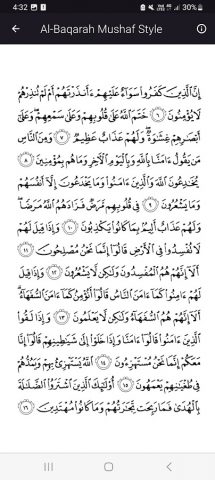 4:32
30%
Al-Baqarah Mushaf Style
إِنَّ ٱلَّذِينَ كَفَرُوا۟ سَوَآءٌ عَلَيْهِمْ ءَأَنذَرْتَهُمْ أَمْ لَمْ تُنذِرْهُمْ
لَا يُؤْمِنُونَ ٦ خَتَمَ ٱللَّهُ عَلَىٰ قُلُوبِهِمْ وَعَلَىٰ سَمْعِهِمْ وَعَلَىٰٓ
أَبْصَـٰرِهِمْ غِشَـٰوَةٌ وَلَهُمْ عَذَابٌ عَظِيمٌ ٧ وَمِنَ ٱلنَّاسِ
مَن يَقُولُ ءَامَنَّا بِٱللَّهِ وَبِٱلْيَوْمِ ٱلْـَٔاخِرِ وَمَا هُم بِمُؤْمِنِينَ ٨
يُخَـٰدِعُونَ ٱللَّهَ وَٱلَّذِينَ ءَامَنُوا۟ وَمَا يَخْدَعُونَ إِلَّآ أَنفُسَهُمْ
وَمَا يَشْعُرُونَ ٩ فِى قُلُوبِهِم مَّرَضٌ فَزَادَهُمُ ٱللَّهُ مَرَضًا
وَلَهُمْ عَذَابٌ أَلِيمٌۢ بِمَا كَانُوا۟ يَكْذِبُونَ ١٠ وَإِذَا قِيلَ لَهُمْ
لَا تُفْسِدُوا۟ فِى ٱلْأَرْضِ قَالُوٓا۟ إِنَّمَا نَحْنُ مُصْلِحُونَ ١١
أَلَآ إِنَّهُمْ هُمُ ٱلْمُفْسِدُونَ وَلَـٰكِن لَّا يَشْعُرُونَ ١٢ وَإِذَا قِيلَ
لَهُمْ ءَامِنُوا۟ كَمَآ ءَامَنَ ٱلنَّاسُ قَالُوٓا۟ أَنُؤْمِنُ كَمَآ ءَامَنَ ٱلسُّفَهَآءُ
أَلَآ إِنَّهُمْ هُمُ ٱلسُّفَهَآءُ وَلَـٰكِن لَّا يَعْلَمُونَ ١٣ وَإِذَا لَقُوا۟
ٱلَّذِينَ ءَامَنُوا۟ قَالُوٓا۟ ءَامَنَّا وَإِذَا خَلَوْا۟ إِلَىٰ شَيَـٰطِينِهِمْ قَالُوٓا۟ إِنَّا
مَعَكُمْ إِنَّمَا نَحْنُ مُسْتَهْزِءُونَ ١٤ ٱللَّهُ يَسْتَهْزِئُ بِهِمْ وَيَمُدُّهُمْ
فِى طُغْيَـٰنِهِمْ يَعْمَهُونَ ١٥ أُو۟لَـٰٓئِكَ ٱلَّذِينَ ٱشْتَرَوُا۟ ٱلضَّلَـٰلَةَ
بِٱلْهُدَىٰ فَمَا رَبِحَت تِّجَـٰرَتُهُمْ وَمَا كَانُوا۟ مُهْتَدِينَ ١٦